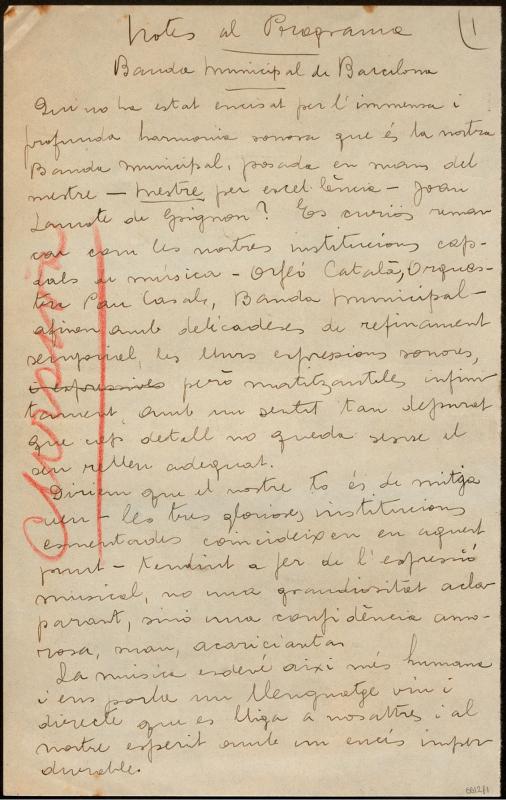 Notes al Programa
1
Banda Municipal de Barcelona
Qui no ha estat encisat per l'immensa i
profunda harmonia sonora que és la nostra
Banda Municipal, posada en mans del
mestre — mestre per excel·lència — Joan
Lamote de Grignon? És curiós remar-
car com les nostres institucions cap-
dals en música - Orfeó Català, Orques-
tra Pau Casals, Banda Municipal -
afinen amb delicadeses de refinament
les llurs expressions sonores,
i expressives però matitzant-les infini-
tament, amb un sentit tan depurat
que cap detall no queda sense el
seu relleu adequat.
Diríem que el nostre to és de mitja
veu - les tres glorioses institucions
esmentades coincideixen en aquest
punt - tendint a fer de l'expressió
musical, no una grandiositat acla-
parant, sinó una confidència amo-
rosa, suau, acariciant.
La música esdevé així més humana
i ens parla un llenguatge viu i
directe que es lliga a nosaltres i al
nostre esperit amb un encís imper-
durable.
6612/1